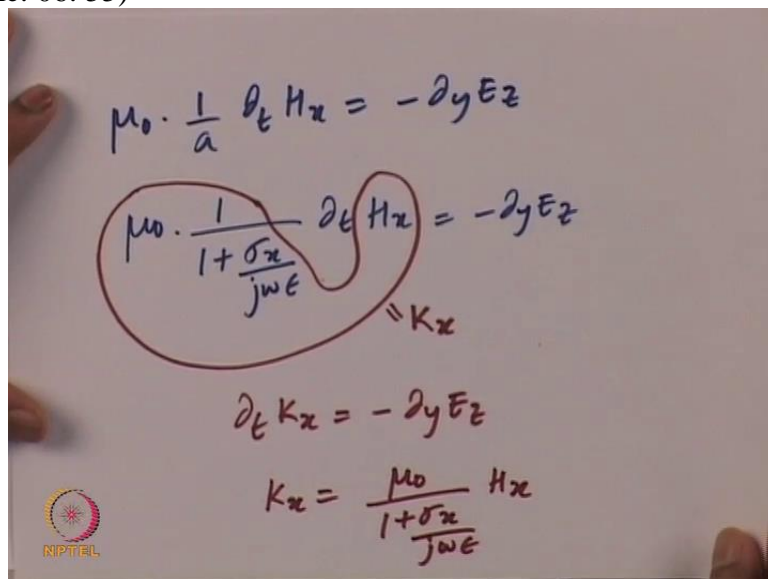 μ₀ · 1/a ∂t Hx = - ∂y Ez
μ₀ · 1/(1 + σx/jωϵ) ∂t Hx = - ∂y Ez
= Kx
∂t Kx = - ∂y Ez
Kx = μ₀/(1 + σx/jωϵ) Hx
NPTEL